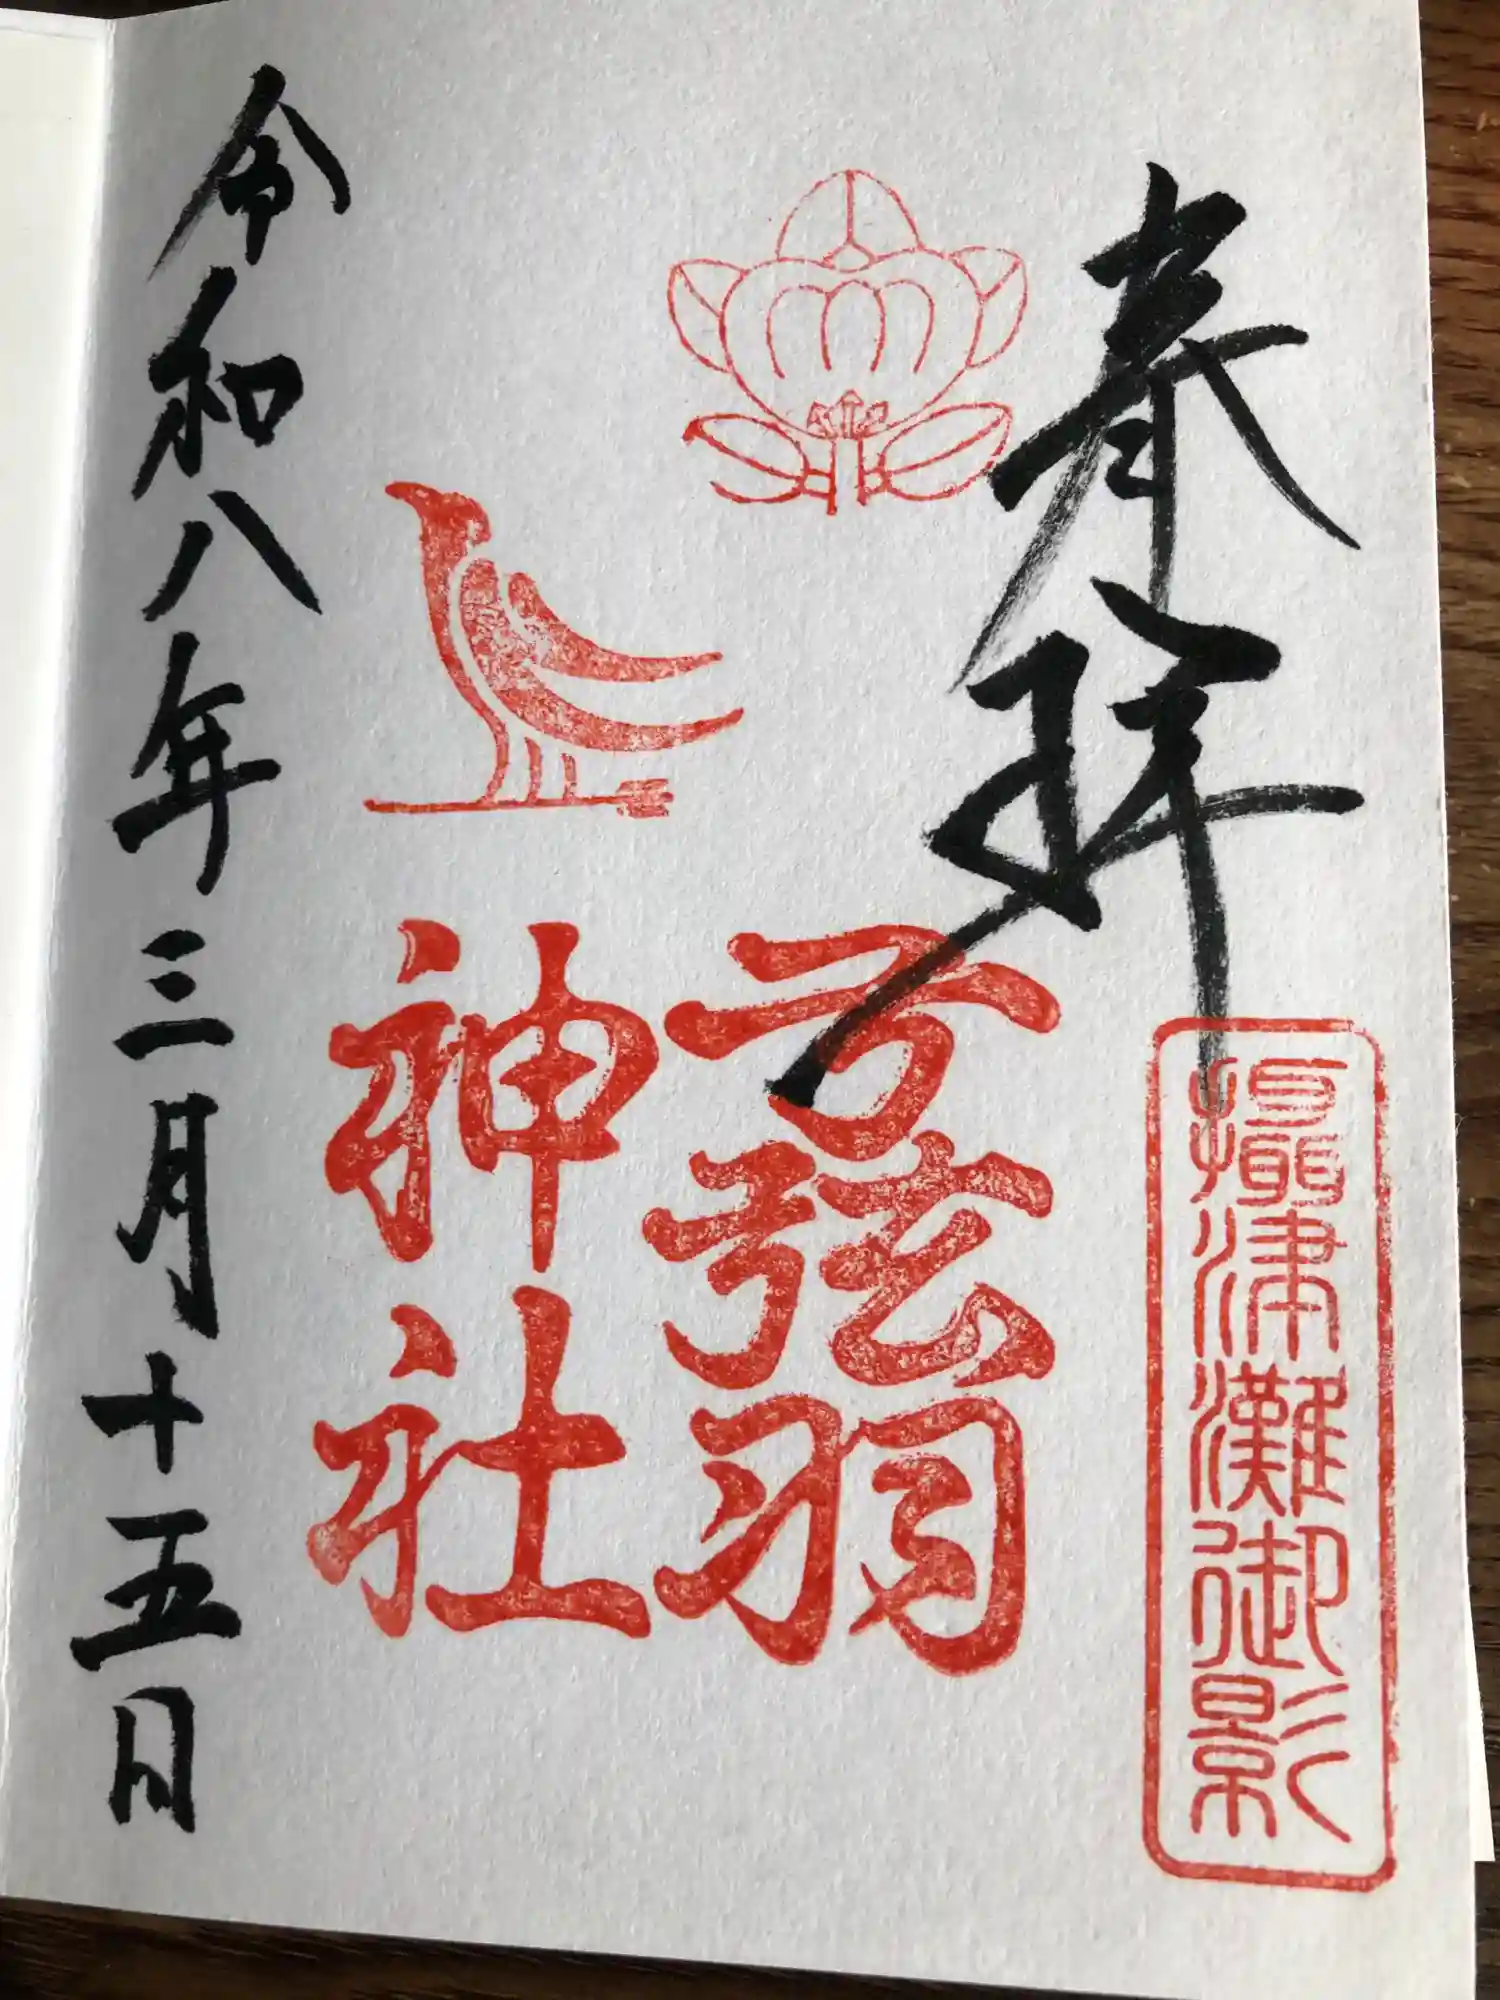 奉拝
攝津灘御影
弓弦羽
神社
令和八年三月十五日